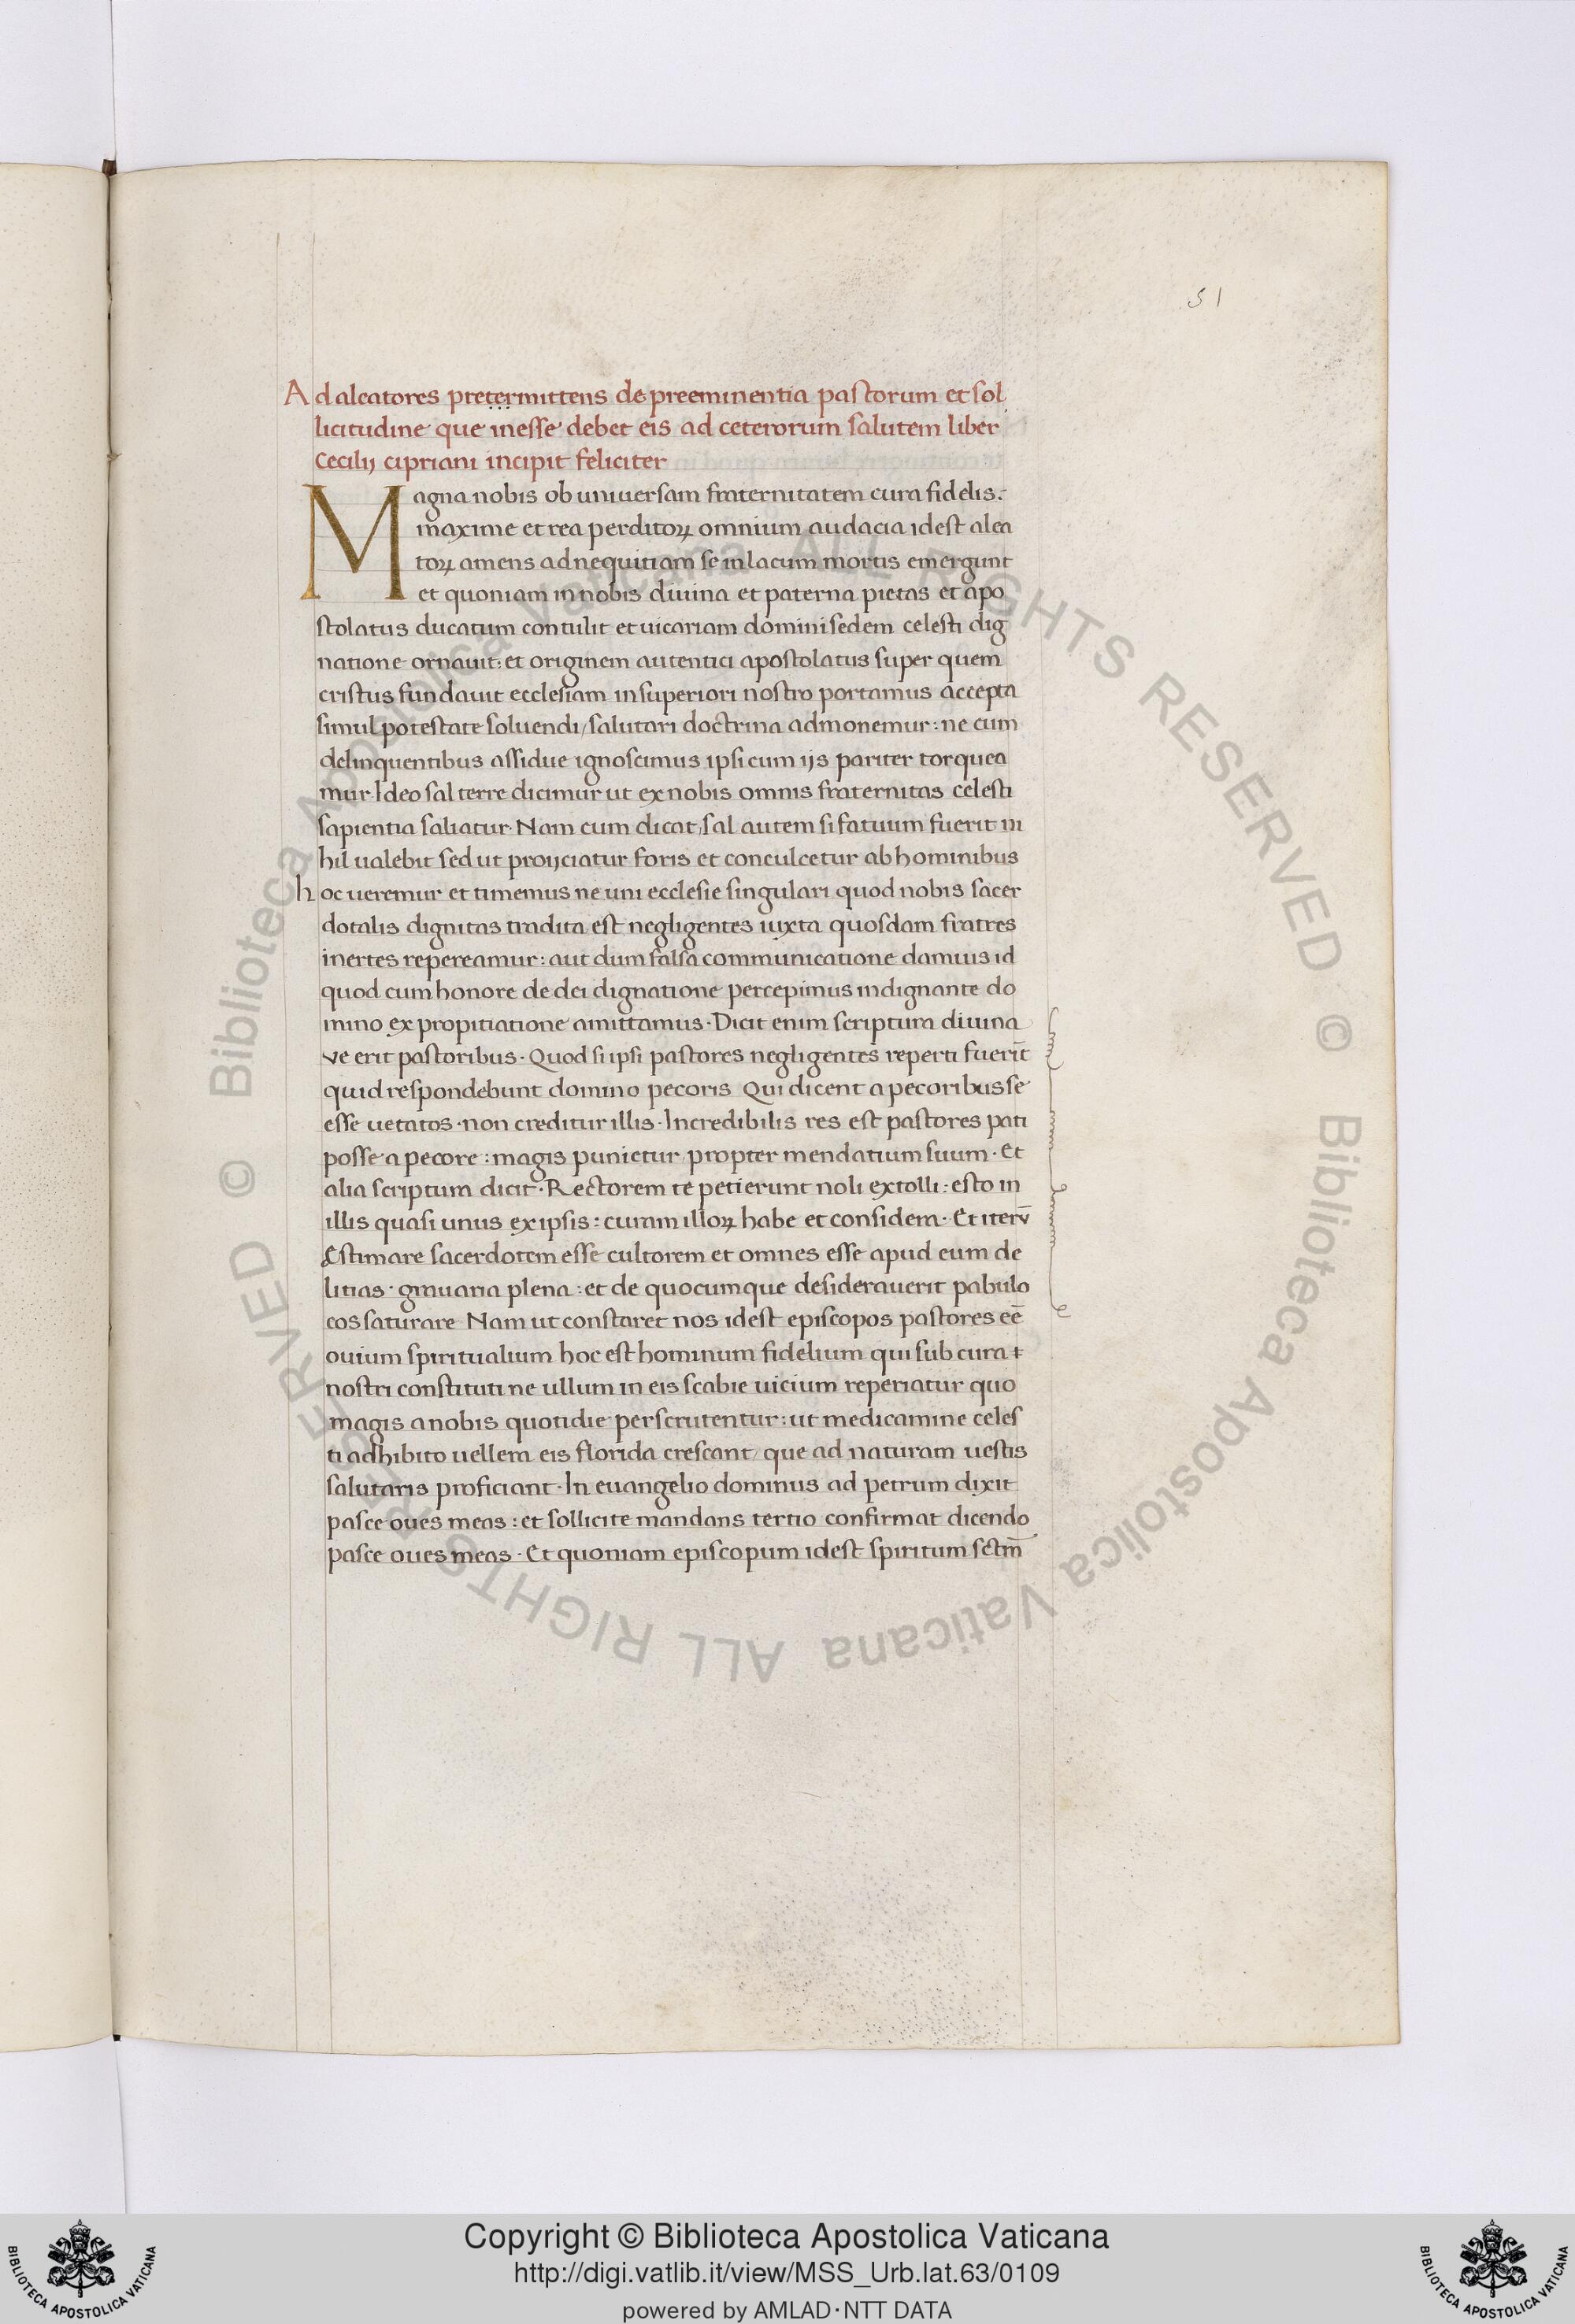 51
Ad aleatores pretermittens de preeminentia pastorum et sol
licitudine que inesse debet eis ad ceterorum salutem liber
Cecilij cipriani incipit feliciter
Magna nobis ob uniuersam fraternitatem cura fidelis:
maxime et rea perditoꝝ omnium audacia idest alea
toꝝ amens ad nequitiam se in lacum mortis emergunt
et quoniam in nobis diuina et paterna pietas et apo
stolatus ducatum contulit et uicariam domini sedem celesti dig
natione ornauit: et originem autentici apostolatus super quem
cristus fundauit ecclesiam in superiori nostro portamus accepta
simul potestate soluendi/ salutari doctrina admonemur: ne cum
delinquentibus assidue ignoscimus ipsi cum ijs pariter torquea
mur. Ideo sal terre dicimur ut ex nobis omnis fraternitas celesti
sapientia saliatur. Nam cum dicat/ sal autem si fatuum fuerit ni
hil ualebit sed ut proijciatur foris et conculcetur ab hominibus
hoc ueremur et timemus ne uni ecclesie singulari quod nobis sacer
dotalis dignitas tradita est negligentes iuxta quosdam fratres
inertes repereamur: aut dum falsa communicatione damus id
quod cum honore de dei dignatione percepimus indignante do
mino ex propitiatione amittamus. Dicit enim scriptura diuina
ve erit pastoribus. Quod si ipsi pastores negligentes reperti fuerit̄
quid respondebunt domino pecoris Qui dicent a pecoribus se
esse uetatos. non creditur illis. Incredibilis res est pastores pati
posse a pecore: magis punietur propter mendatium suum. Et
alia scriptura dicit. Rectorem te petierunt noli extolli: esto in
illis quasi unus ex ipsis: curam illoꝝ habe et considera. Et iterū
Estimare sacerdotem esse cultorem et omnes esse apud eum de
litias. grauaria plena: et de quocumque desiderauerit pabulo
eos saturare Nam ut constaret nos idest episcopos pastores eē
ouium spiritualium hoc est hominum fidelium qui sub cura
nostri constituti ne ullum in eis scabie uicium reperiatur quo
magis a nobis quotidie perscrutentur: ut medicamine celes
ti adhibito uellem eis florida crescant/ que ad naturam uestis
salutaris proficiant. In euangelio dominus ad petrum dixit
pasce oues meas: et sollicite mandans tertio confirmat dicendo
pasce oues meas. Et quoniam episcopum idest spiritum sctm̄
© Biblioteca Apostolica Vaticana ALL RIGHTS RESERVED
© Biblioteca Apostolica Vaticana ALL RIGHTS RESERVED
Copyright © Biblioteca Apostolica Vaticana
http://digi.vatlib.it/view/MSS_Urb.lat.63/0109
powered by AMLAD·NTT DATA
BIBLIOTECA APOSTOLICA VATICANA
BIBLIOTECA APOSTOLICA VATICANA